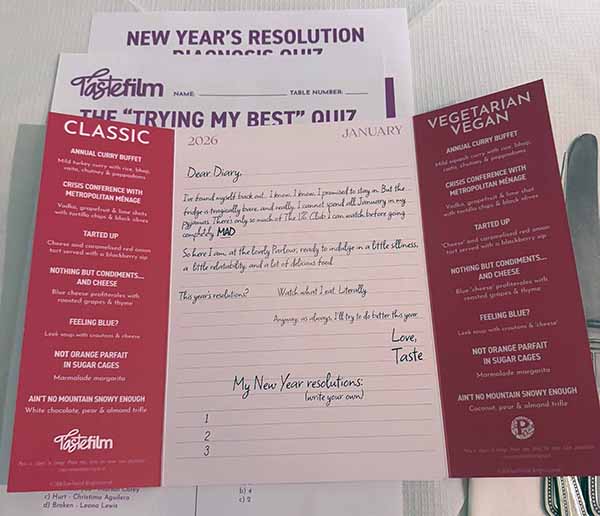 NEW YEAR'S RESOLUTION
DIAGNOSIS QUIZ
Tastefilm
NAME:
TABLE NUMBER:
THE "TRYING MY BEST" QUIZ
CLASSIC
ANNUAL CURRY BUFFET
Mild turkey curry with rice, bhaji,
raita, chutney & poppadoms
CRISIS CONFERENCE WITH
METROPOLITAN MÉNAGE
Vodka, grapefruit & lime shots
with tortilla chips & black olives
TARTED UP
Cheese and caramelised red onion
tart served with a blackberry sip
NOTHING BUT CONDIMENTS...
AND CHEESE
Blue cheese profiteroles with
roasted grapes & thyme
FEELING BLUE?
Leek soup with croutons & cheese
NOT ORANGE PARFAIT
IN SUGAR CAGES
Marmalade margarita
AIN'T NO MOUNTAIN SNOWY ENOUGH
White chocolate, pear & almond trifle
Tastefilm
2026
JANUARY
Dear Diary,
I've found myself back out. I know, I know, I promised to stay in. But the
fridge is tragically bare, and really, I cannot spend all January in my
pyjamas. There's only so much of The 1% Club I can watch before going
completely MAD.
So here I am, at the lovely Parlour, ready to indulge in a little silliness,
a little relatability, and a lot of delicious food.
This year's resolutions? Watch what I eat. Literally.
Anyway, as always, I'll try to do better this year...
Love,
Taste
My New Year resolutions:
(write your own)
1
2
3
VEGETARIAN
VEGAN
ANNUAL CURRY BUFFET
Mild squash curry with rice, bhaji,
raita, chutney & poppadoms
CRISIS CONFERENCE WITH
METROPOLITAN MÉNAGE
Vodka, grapefruit & lime shots
with tortilla chips & black olives
TARTED UP
'Cheese' and caramelised red onion
tart served with a blackberry sip
NOTHING BUT CONDIMENTS...
AND CHEESE
Blue 'cheese' profiteroles with
roasted grapes & thyme
FEELING BLUE?
Leek soup with croutons & 'cheese'
NOT ORANGE PARFAIT
IN SUGAR CAGES
Marmalade margarita
AIN'T NO MOUNTAIN SNOWY ENOUGH
Coconut, pear & almond trifle
P
c) Hurt - Christina Aguilera
d) Broken - Leona Lewis
b) 4
c) 2